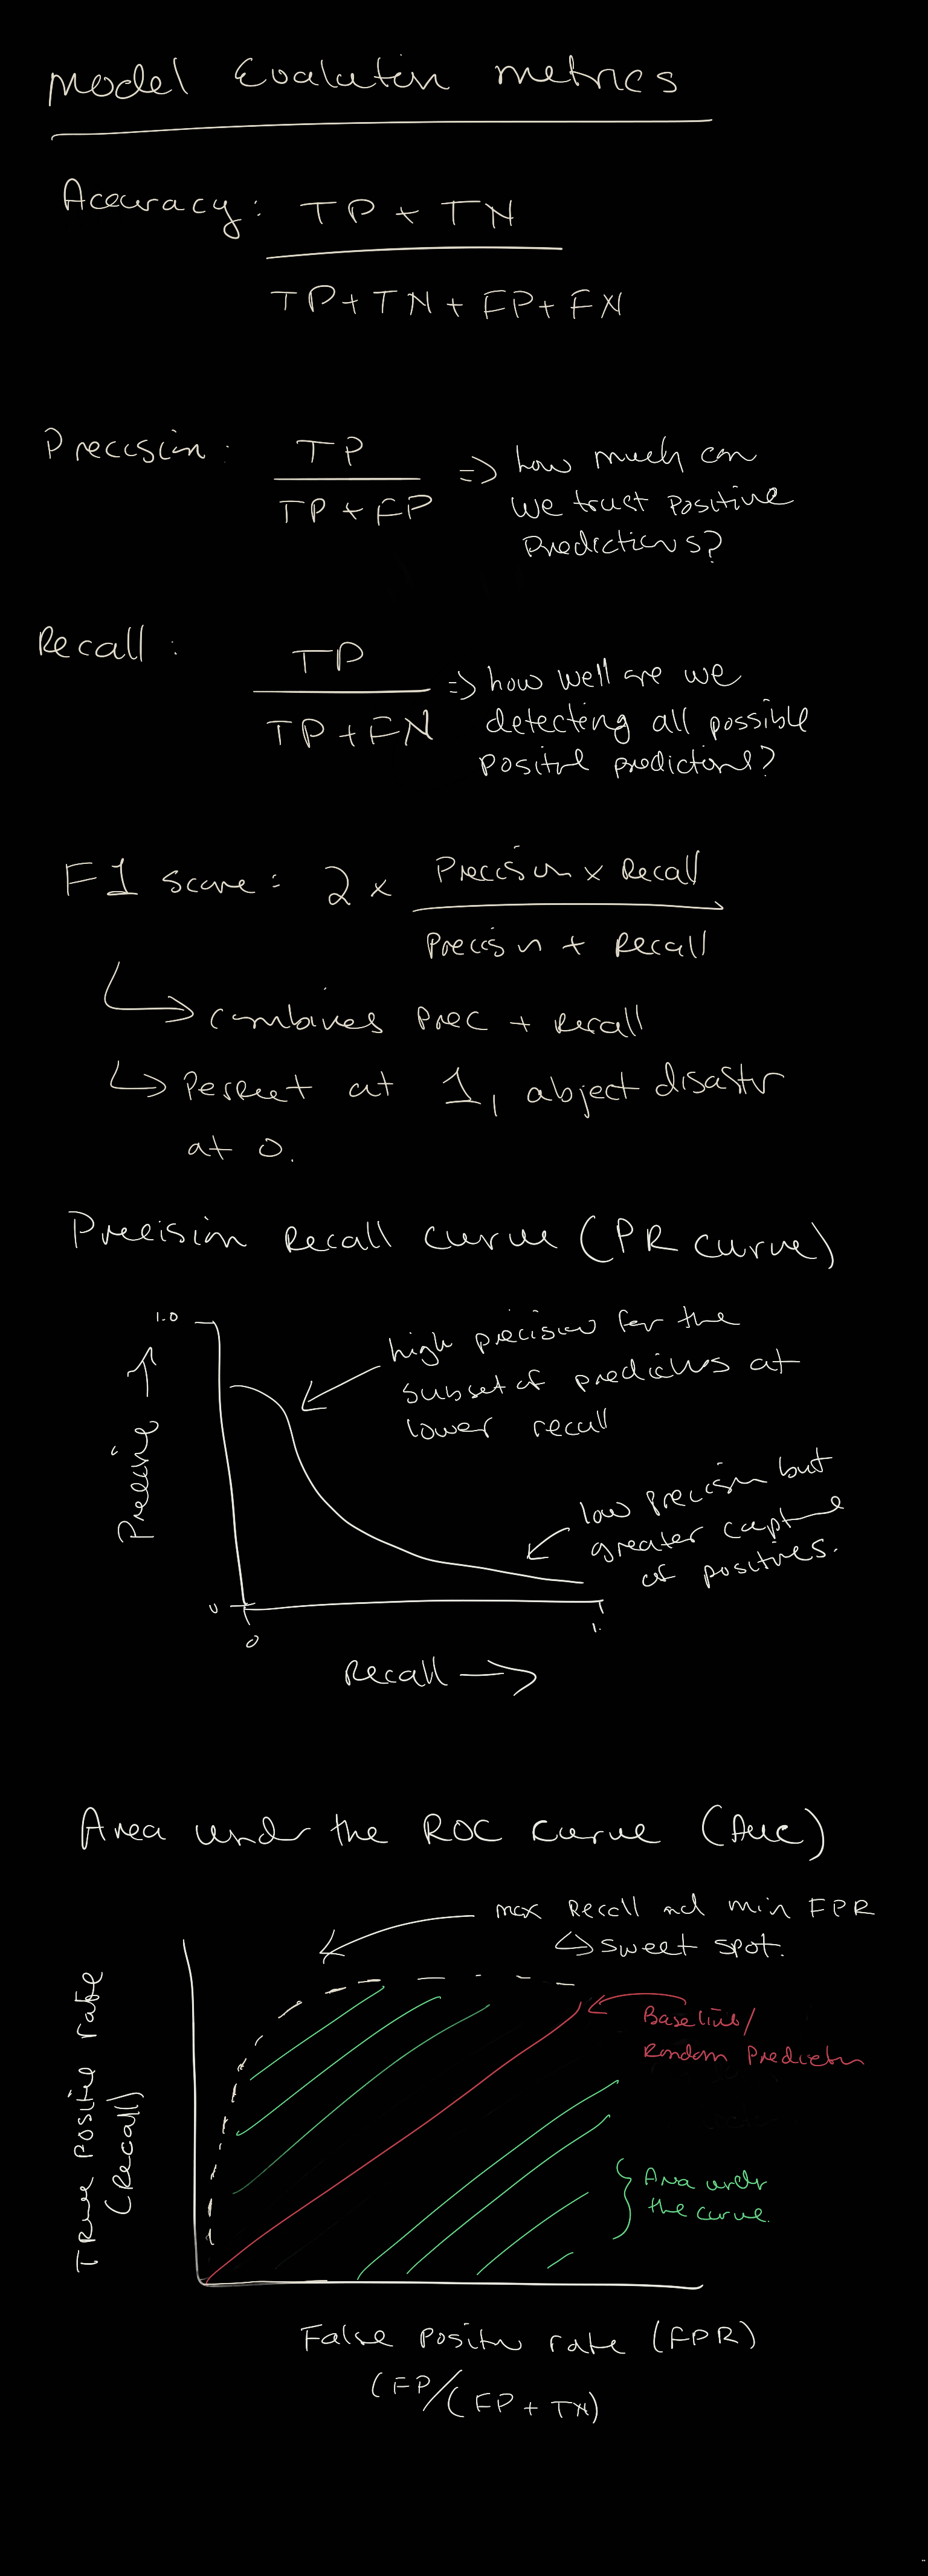 Model Evaluation metrics
Accuracy: TP + TN
TP + TN + FP + FN
Precision: TP
TP + FP
=> how much can
we trust positive
predictions?
Recall: TP
TP + FN
=> how well are we
detecting all possible
positive predictions?
F1 score: 2 x Precision x Recall
Precision + Recall
↳ combines prec + recall
↳ Perfect at 1, abject disaster
at 0.
Precision Recall curve (PR curve)
1.0
high precision for the
subset of predictions at
lower recall
Precision →
low precision but
greater capture
of positives.
0
0
1.
Recall →
Area under the ROC curve (AUC)
max Recall and min FPR
↳ sweet spot.
Baseline/
Random Predictor
True Positive rate
(Recall)
Area under
the curve.
False positive rate (FPR)
(FP/(FP + TN)